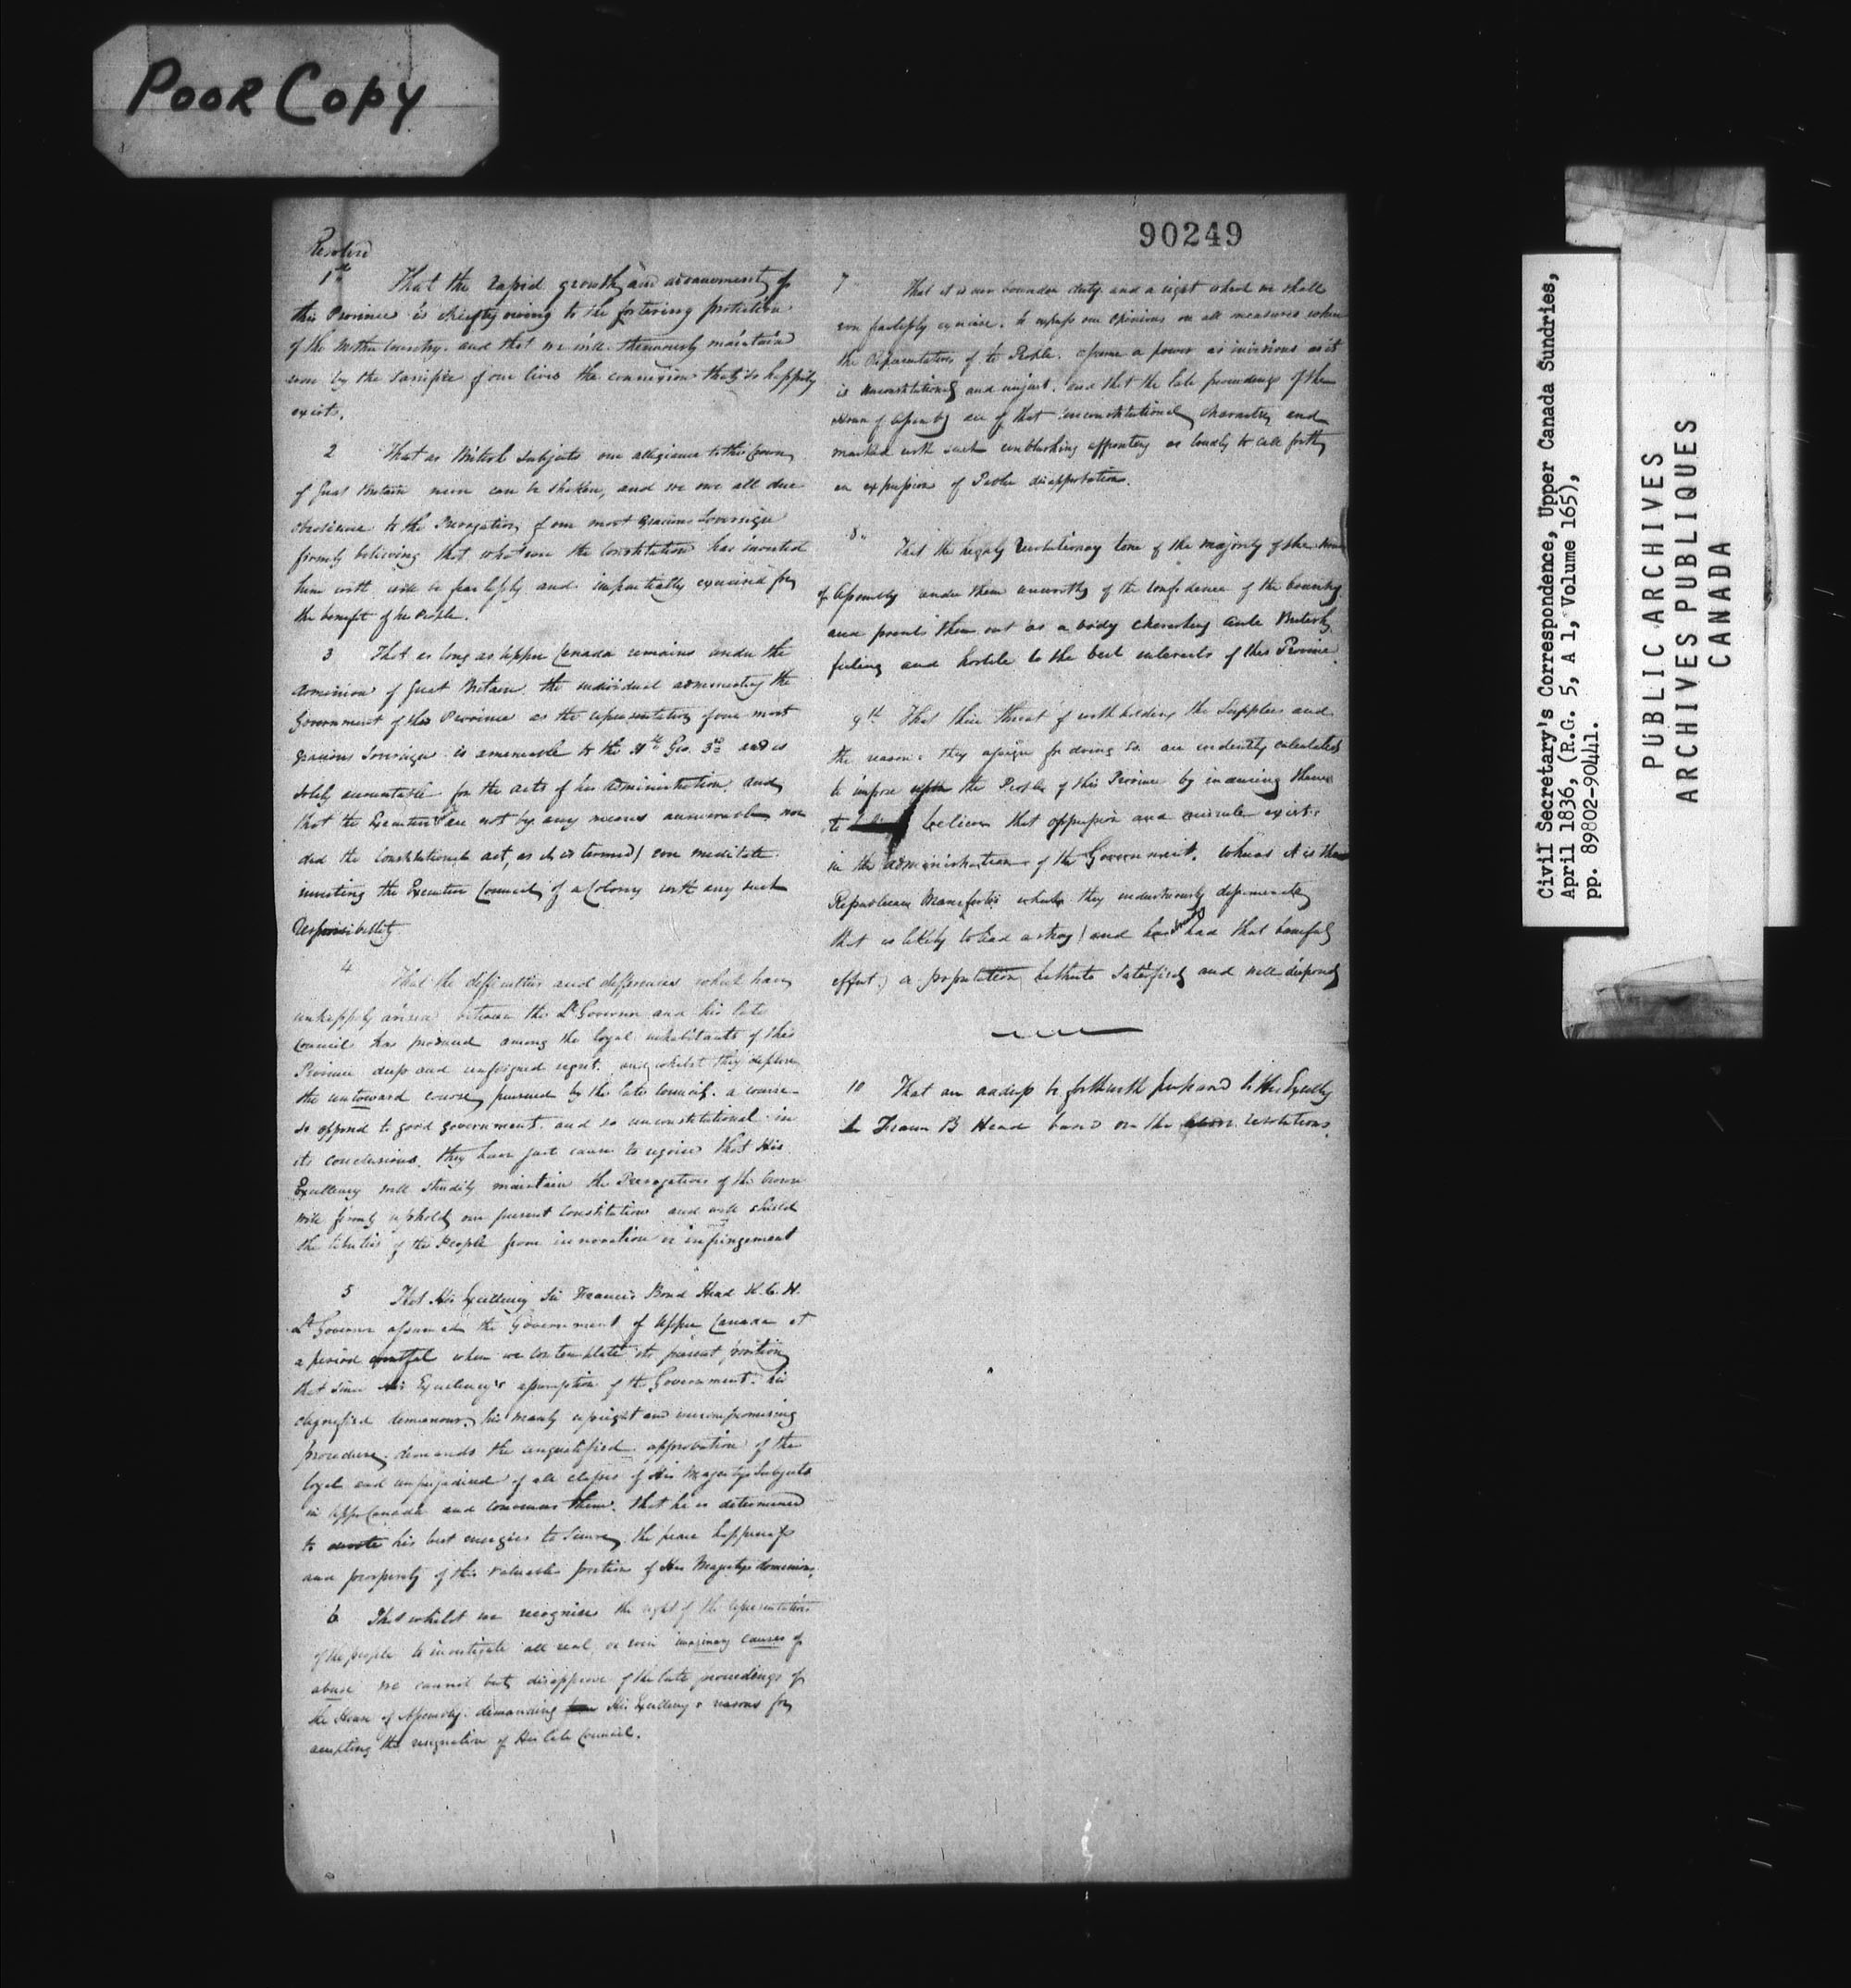 POOR COPY
90249
Resolved
1st That the rapid growth and advancement of
this Province is chiefly owing to the fostering protection
of the Mother Country. and that we will strenuously maintain
even by the sacrifice of our lives the connexion that so happily
exists.
2 That as British Subjects our allegiance to the Crown
of Great Britain never can be shaken, and we owe all due
obedience to the Prerogative of our most gracious Sovereign
firmly believing that whatever the Constitution has invested
him with will be fearlessly and impartially exercised for
the benefit of his People.
3 That as long as Upper Canada remains under the
dominion of Great Britain the individual administering the
Government of this Province as the representative of our most
gracious Sovereign is amenable to the 31st Geo. 3rd and is
solely accountable for the acts of his Administration and
that the Executive are not by any means answerable nor
did the Constitutional act, as it is termed) ever meditate
investing the Executive Council of a Colony with any such
responsibility
4 That the difficulties and differences which have
unhappily arisen between the Lt Governor and his late
Council has produced among the loyal inhabitants of this
Province deep and unfeigned regret. and whilst they deplore
the untoward course pursued by the late Council. a course
so opposed to good government. and so unconstitutional in
its conclusions. they have just cause to rejoice that His
Excellency will steadily maintain the Prerogatives of the Crown
will firmly uphold our present Constitution and will shield
the liberties of the People from innovation or infringement
5 That His Excellency Sir Francis Bond Head K.C.H.
Lt Governor assumed the Government of Upper Canada at
a period eventful when we contemplate its present position
that since His Excellency's assumption of the Government. his
dignified demeanour, his manly upright and uncompromising
procedure. demands the unqualified approbation of the
loyal and unprejudiced of all classes of His Majestys Subjects
in Upper Canada and convinces them. that he is determined
to devote his best energies to secure the peace happiness
and prosperity of this valuable portion of His Majestys dominions.
6 That whilst we recognise the right of the representatives
of the people to investigate all real or even imaginary causes of
abuse we cannot but disapprove of the late proceedings of
the House of Assembly. demanding His Excellency's reasons for
accepting the resignation of His late Council.
7 That it is our bounden duty and a right which we shall
ever fearlessly exercise. to express our opinions on all measures when
the Representatives of the People. assume a power as invidious as it
is unconstitutional and unjust. and that the late proceedings of the
House of Assembly are of that unconstitutional character and
marked with such unblushing effrontery as loudly to call forth
an expression of Public disapprobation.
8 That the highly revolutionary tone of the majority of the House
of Assembly render them unworthy of the confidence of the Country
and points them out as a body cherishing anti British
feeling and hostile to the best interests of this Province.
9th That their threat of withholding the Supplies and
the reasons they assign for doing so are evidently calculated
to impose upon the People of this Province by inducing them
to believe that oppression and misrule exists
in the administration of the Government. whereas it is the
Republican Manifestos which they industriously disseminate
that is likely to lead astray (and has had that baneful
effect.) a population hitherto satisfied and well disposed
10 That an address be forthwith prepared to His Excelly
Sir Francis B Head based on the above resolutions.
Civil Secretary's Correspondence, Upper Canada Sundries,
April 1836, (R.G. 5, A 1, Volume 165),
pp. 89802-90441.
PUBLIC ARCHIVES
ARCHIVES PUBLIQUES
CANADA